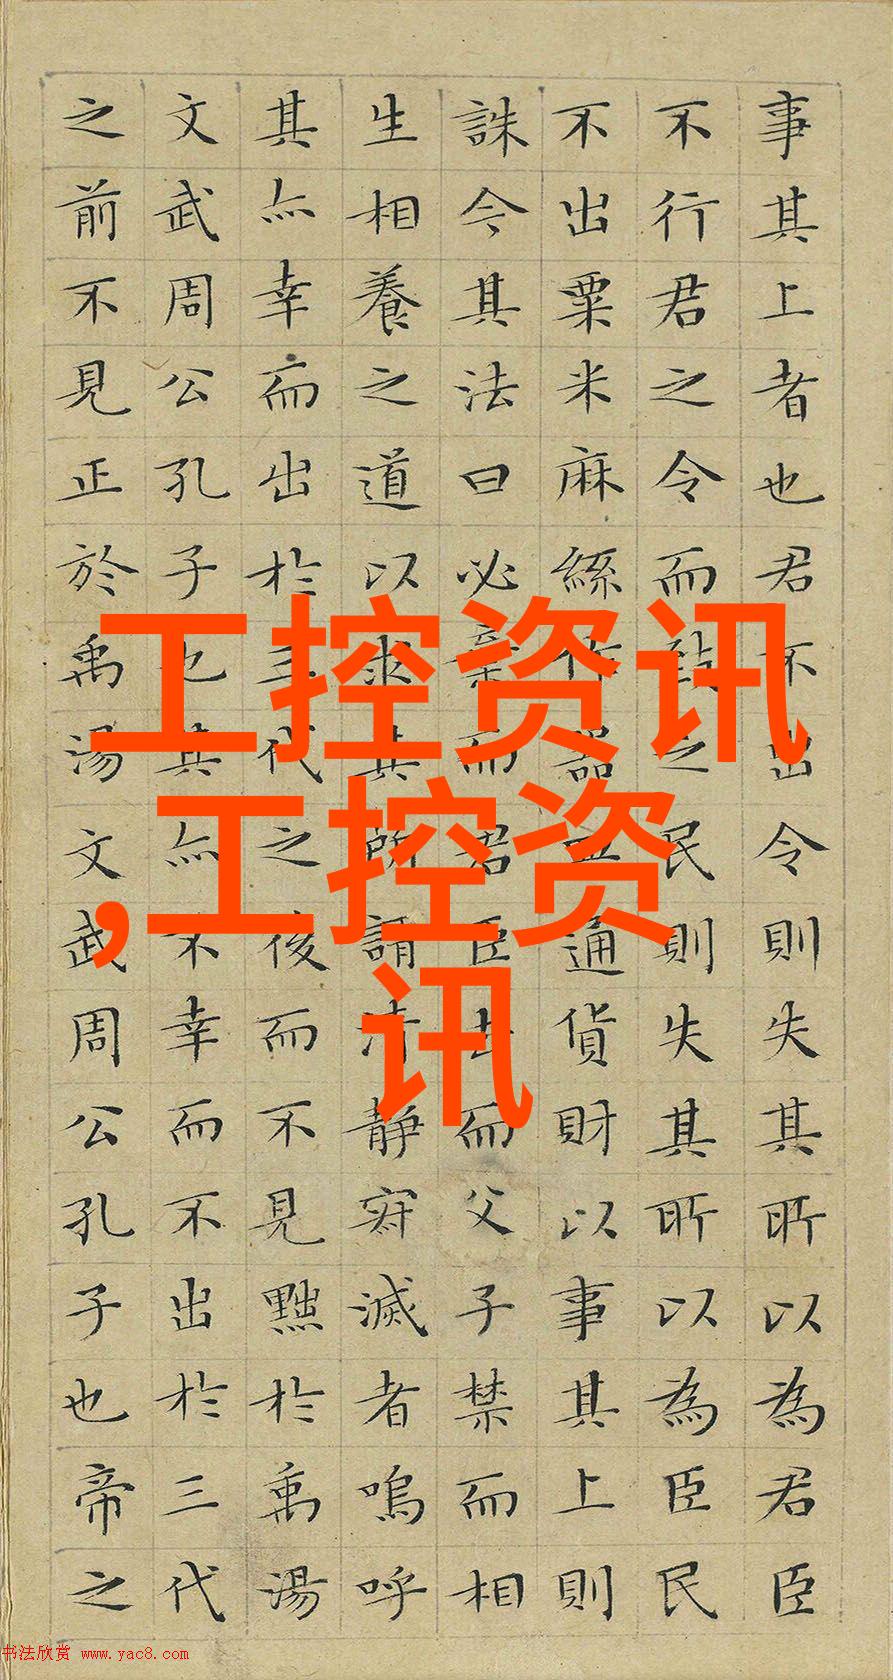 事其上者也君不出令則失其所以為君臣
不行君之令而致之民則失其所以為臣民
不出粟米麻絲作器皿通貨財以事其上則
誅今其法曰必棄而君臣去而父子禁而相
生相養之道以求其所謂清靜寂滅者嗚呼
其亦幸而出於三代之後而不見黜於禹湯
文武周公孔子也其亦不幸而不出於三代
之前不見正於禹湯文武周公孔子也帝之
工控资讯
,工控资
讯
书法欣赏 www.yac8.com